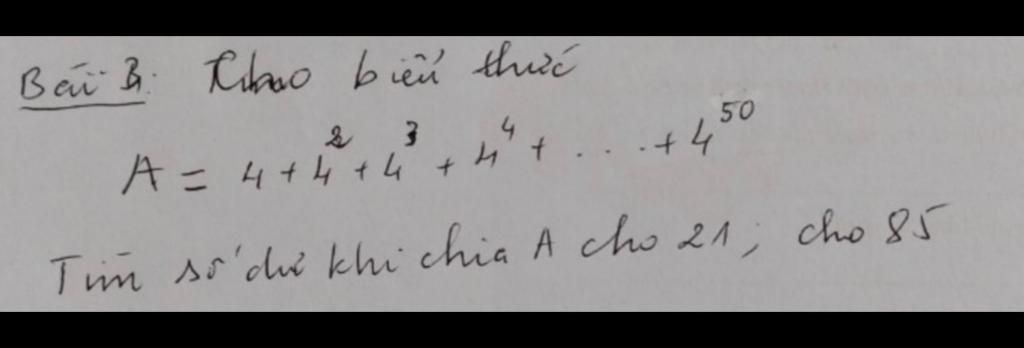 Bài 3: Cho biểu thức
A = 4 + 4² + 4³ + 4⁴ + ... + 4⁵⁰
Tìm số dư khi chia A cho 21; cho 85